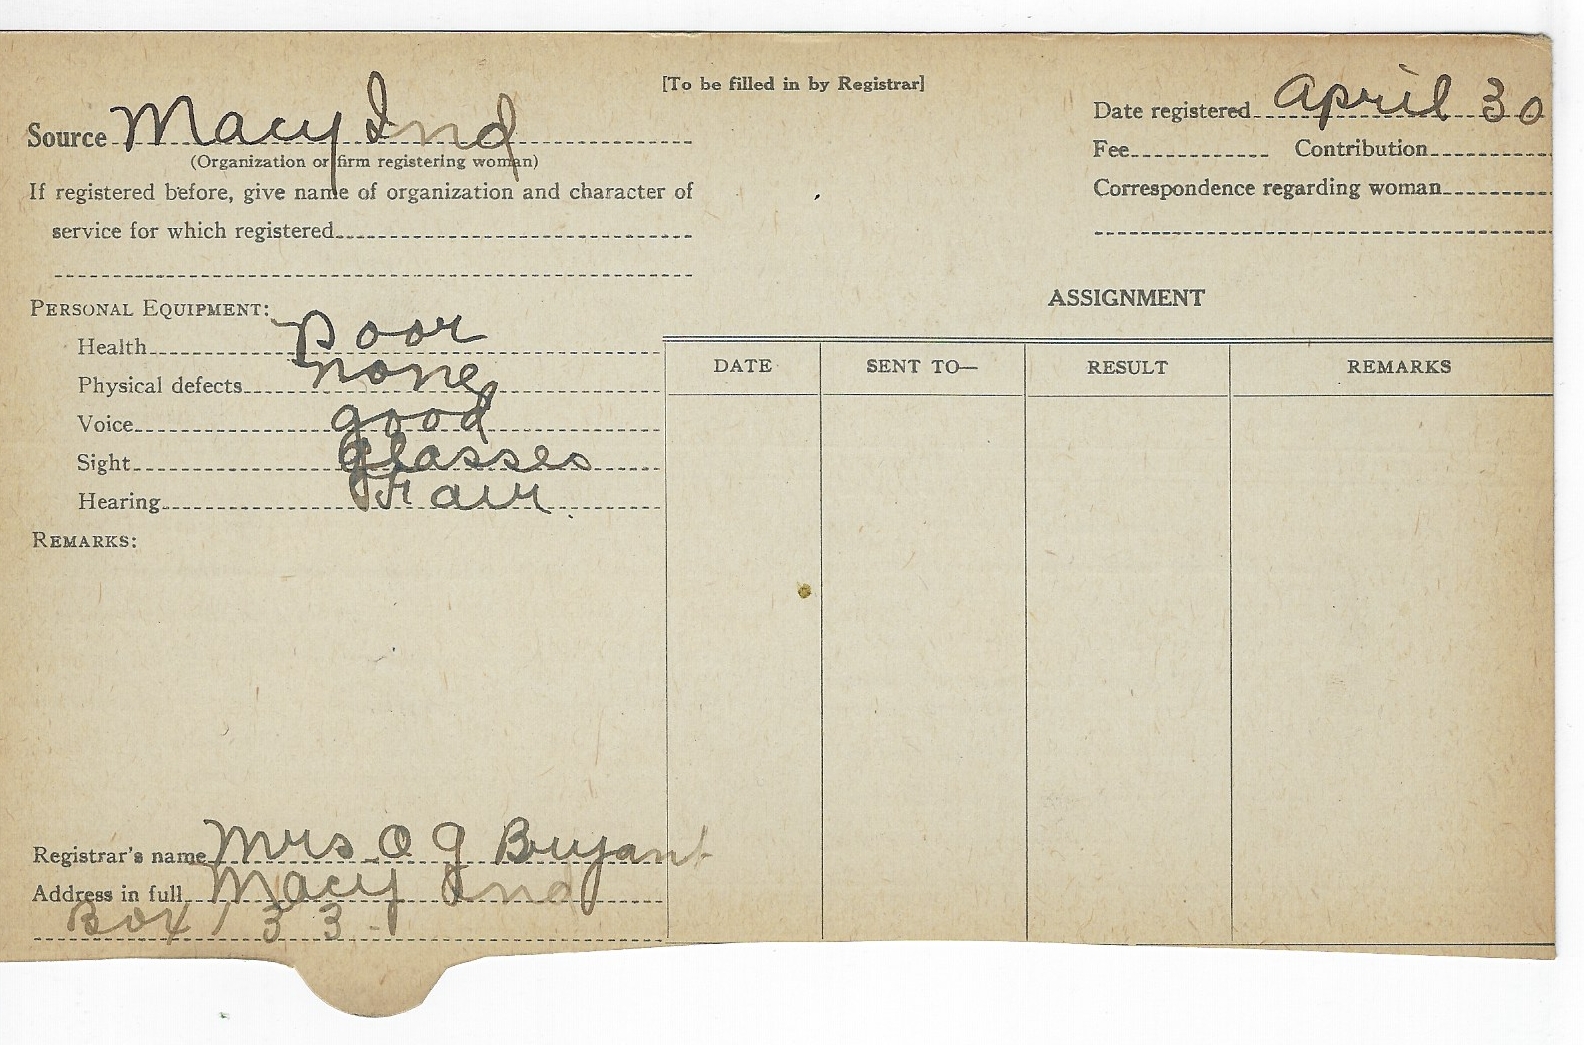 [To be filled in by Registrar]
Source Macy Ind
(Organization or firm registering woman)
If registered before, give name of organization and character of
service for which registered
Date registered April 30
Fee Contribution
Correspondence regarding woman
PERSONAL EQUIPMENT:
Health Poor
Physical defects none
Voice good
Sight glasses
Hearing Fair
REMARKS:
ASSIGNMENT
DATE SENT TO— RESULT REMARKS
Registrar's name Mrs O G Bryant
Address in full Macy Ind
Box 133-